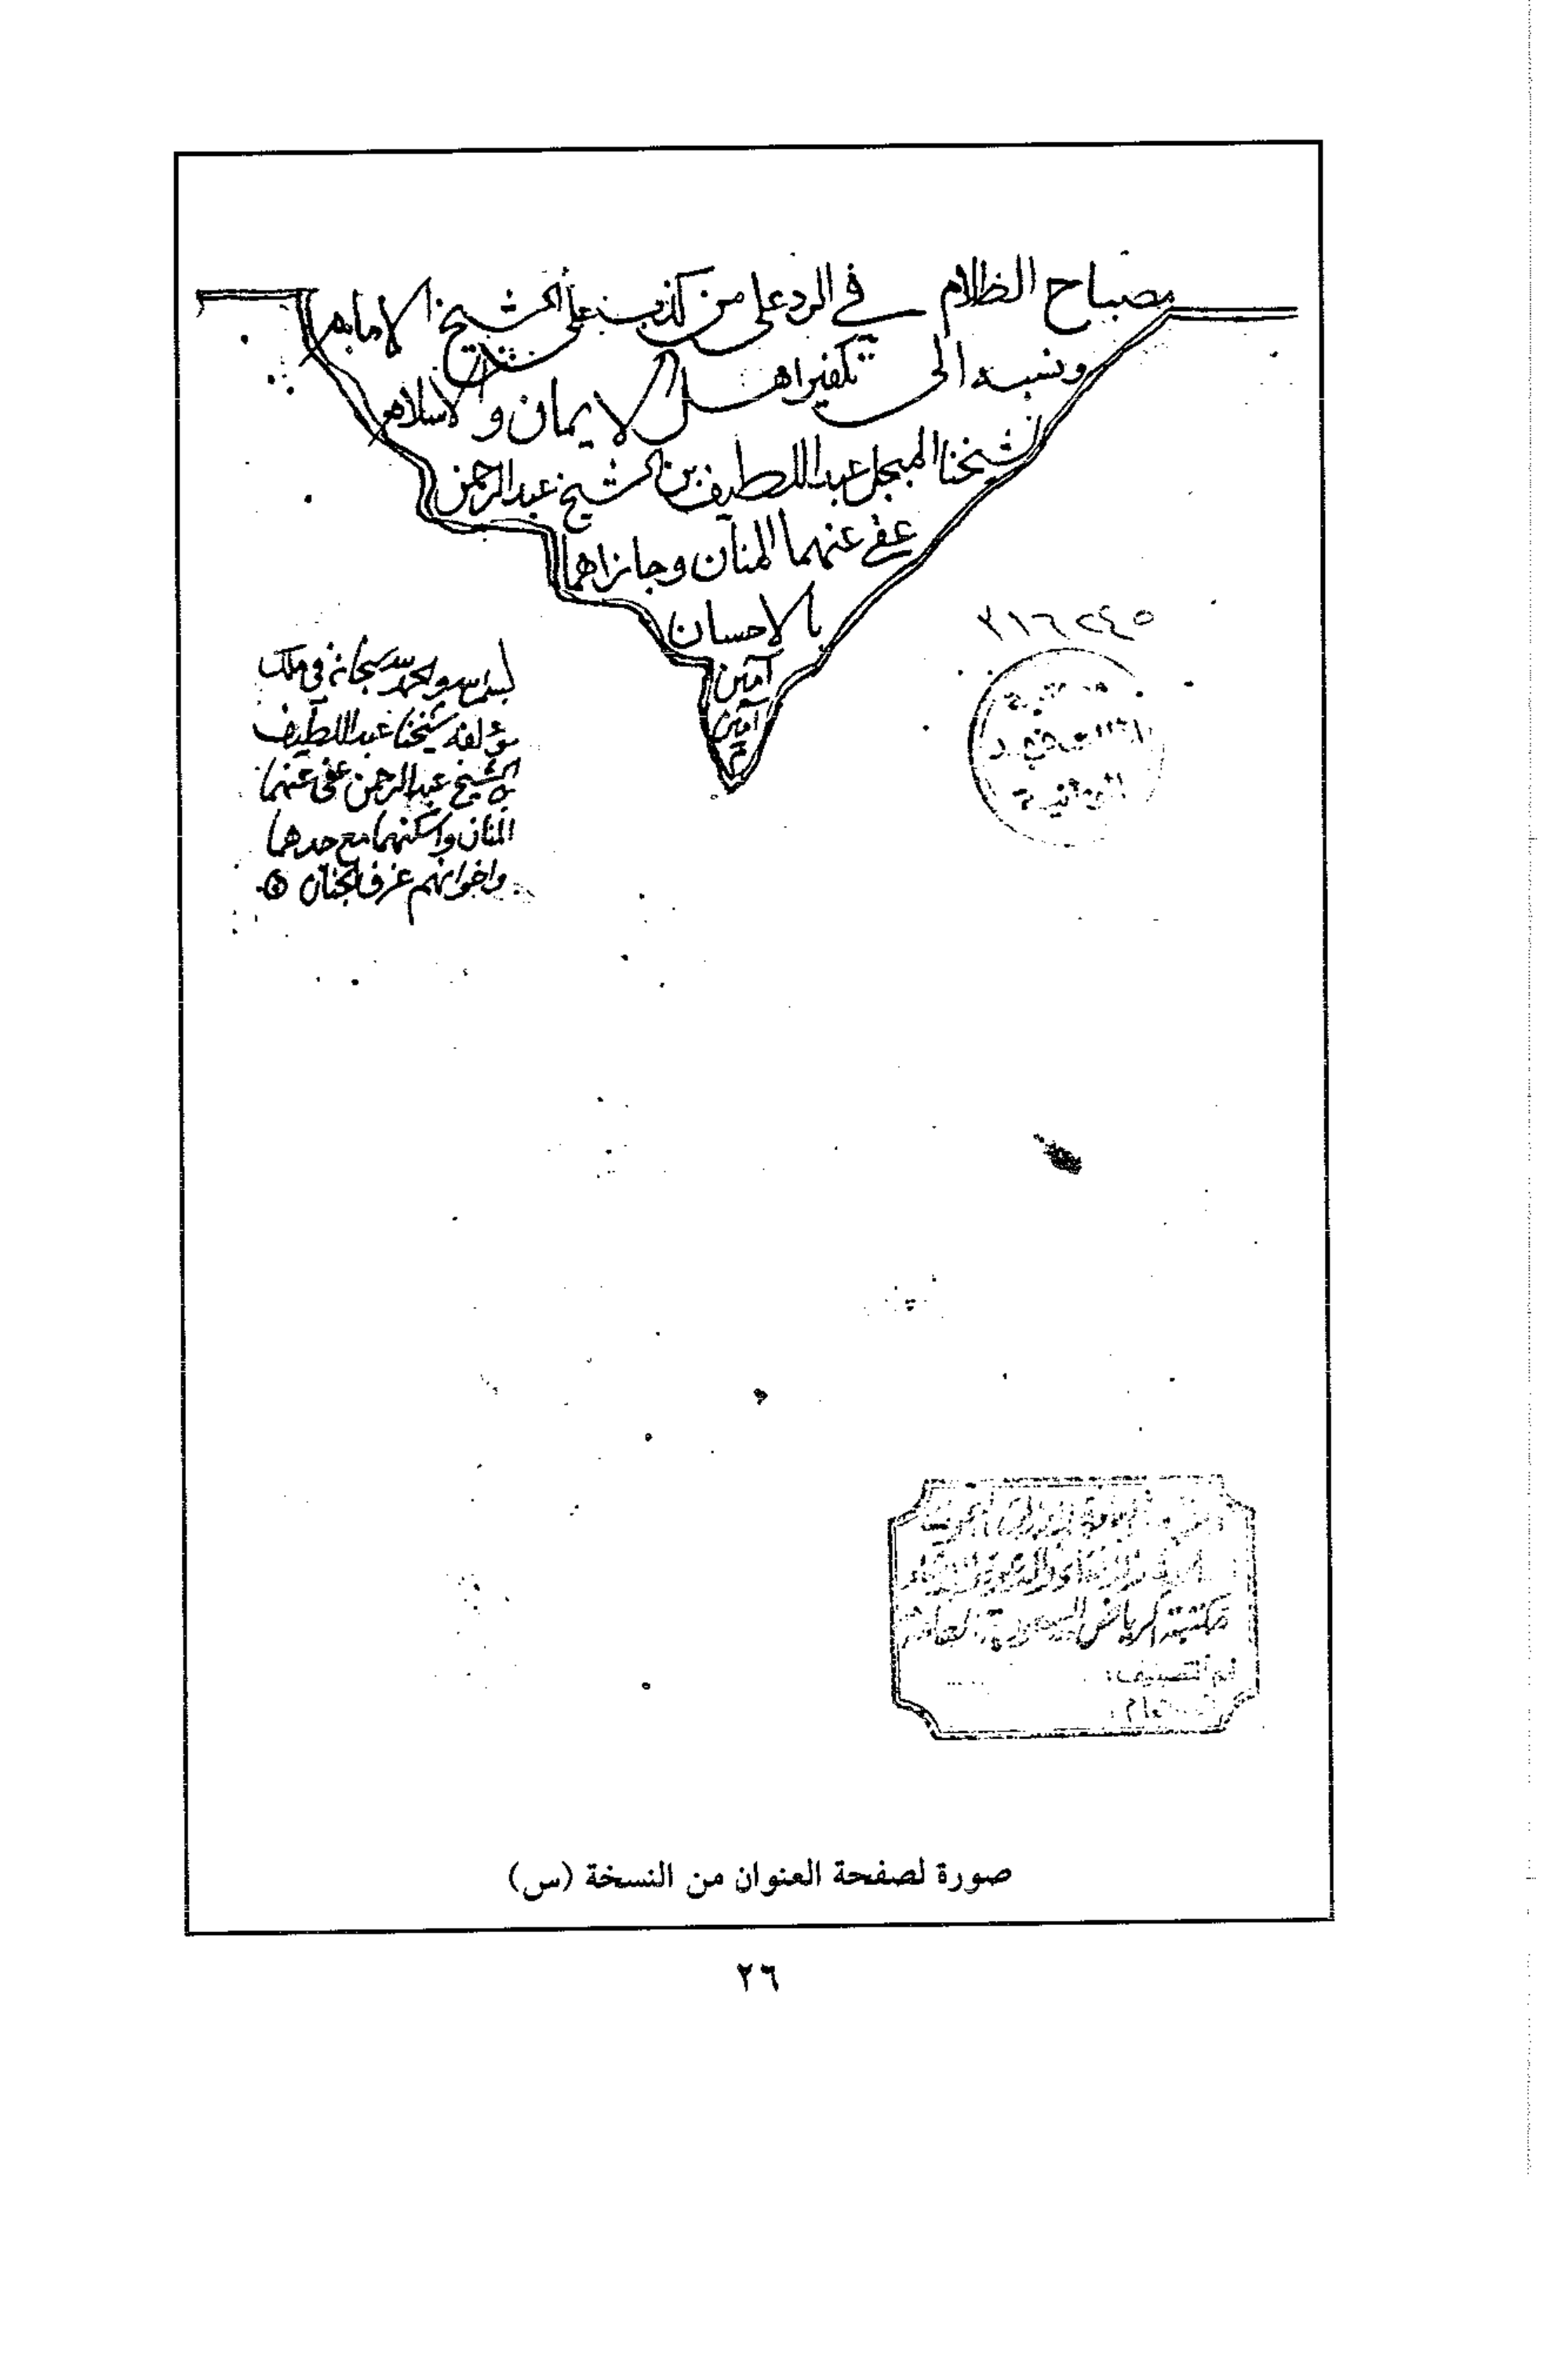 مصباح الظلام في الرد على من كذب على الشيخ الامام
ونسبه الى تكفير اهل الايمان والاسلام
لشيخنا المبجل عبداللطيف بن الشيخ عبدالرحمن
عفى عنهما المنان وجازاهما
بالاحسان
آمين
آمين
بسم الله والحمد لله سبحانه في ملك
مؤلفه شيخنا عبداللطيف
بن الشيخ عبدالرحمن عفى عنهما
المنان واسكنهما مع جدهما
واخوانهم غرف الجنان
مكتبة الرياض السعودية العامة
رقم التصنيف:
صورة لصفحة العنوان من النسخة (س)
٢٦